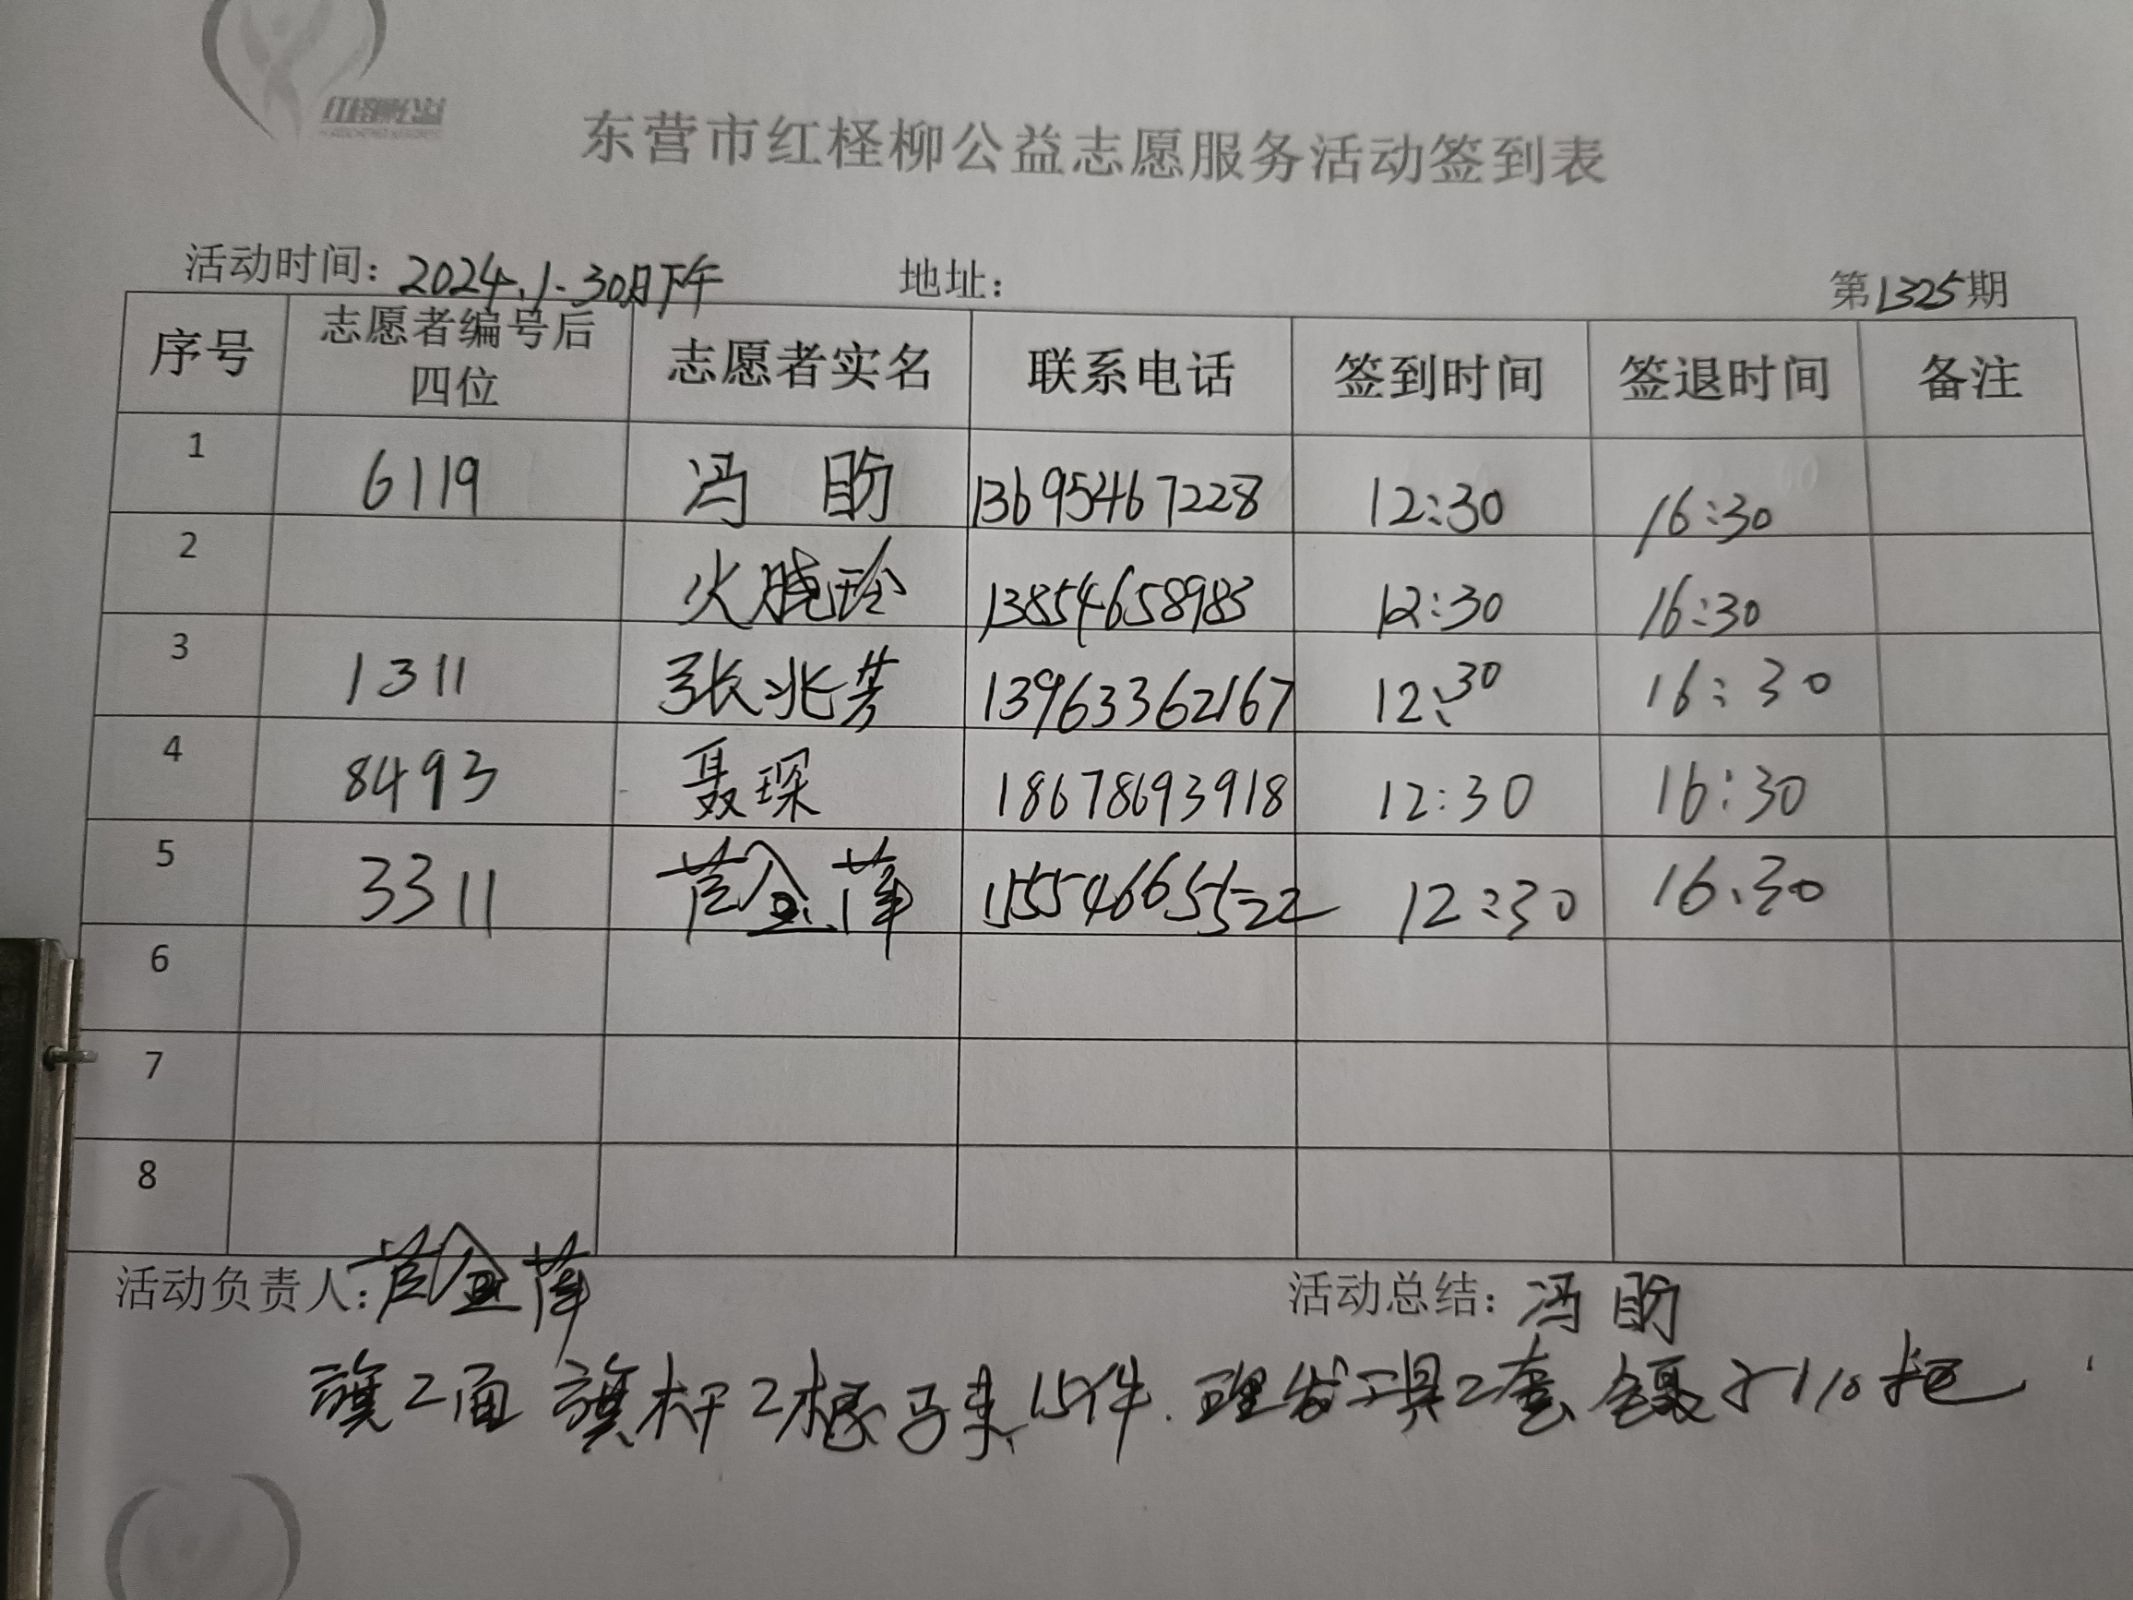 红柽柳公益
东营市红柽柳公益志愿服务活动签到表
活动时间：2024.1.30日下午 地址： 第1325期
序号 志愿者编号后四位 志愿者实名 联系电话 签到时间 签退时间 备注
1 6119 冯盼 13695467228 12:30 16:30
2 火晓玲 13854658983 12:30 16:30
3 1311 张兆芳 13963362167 12:30 16:30
4 8493 聂琛 18678693918 12:30 16:30
5 3311 苣金萍 15554665522 12:30 16.30
6
7
8
活动负责人： 金萍 活动总结：冯盼
旗2面 旗杆2根马夹15件.理发工具2套 镊子110把